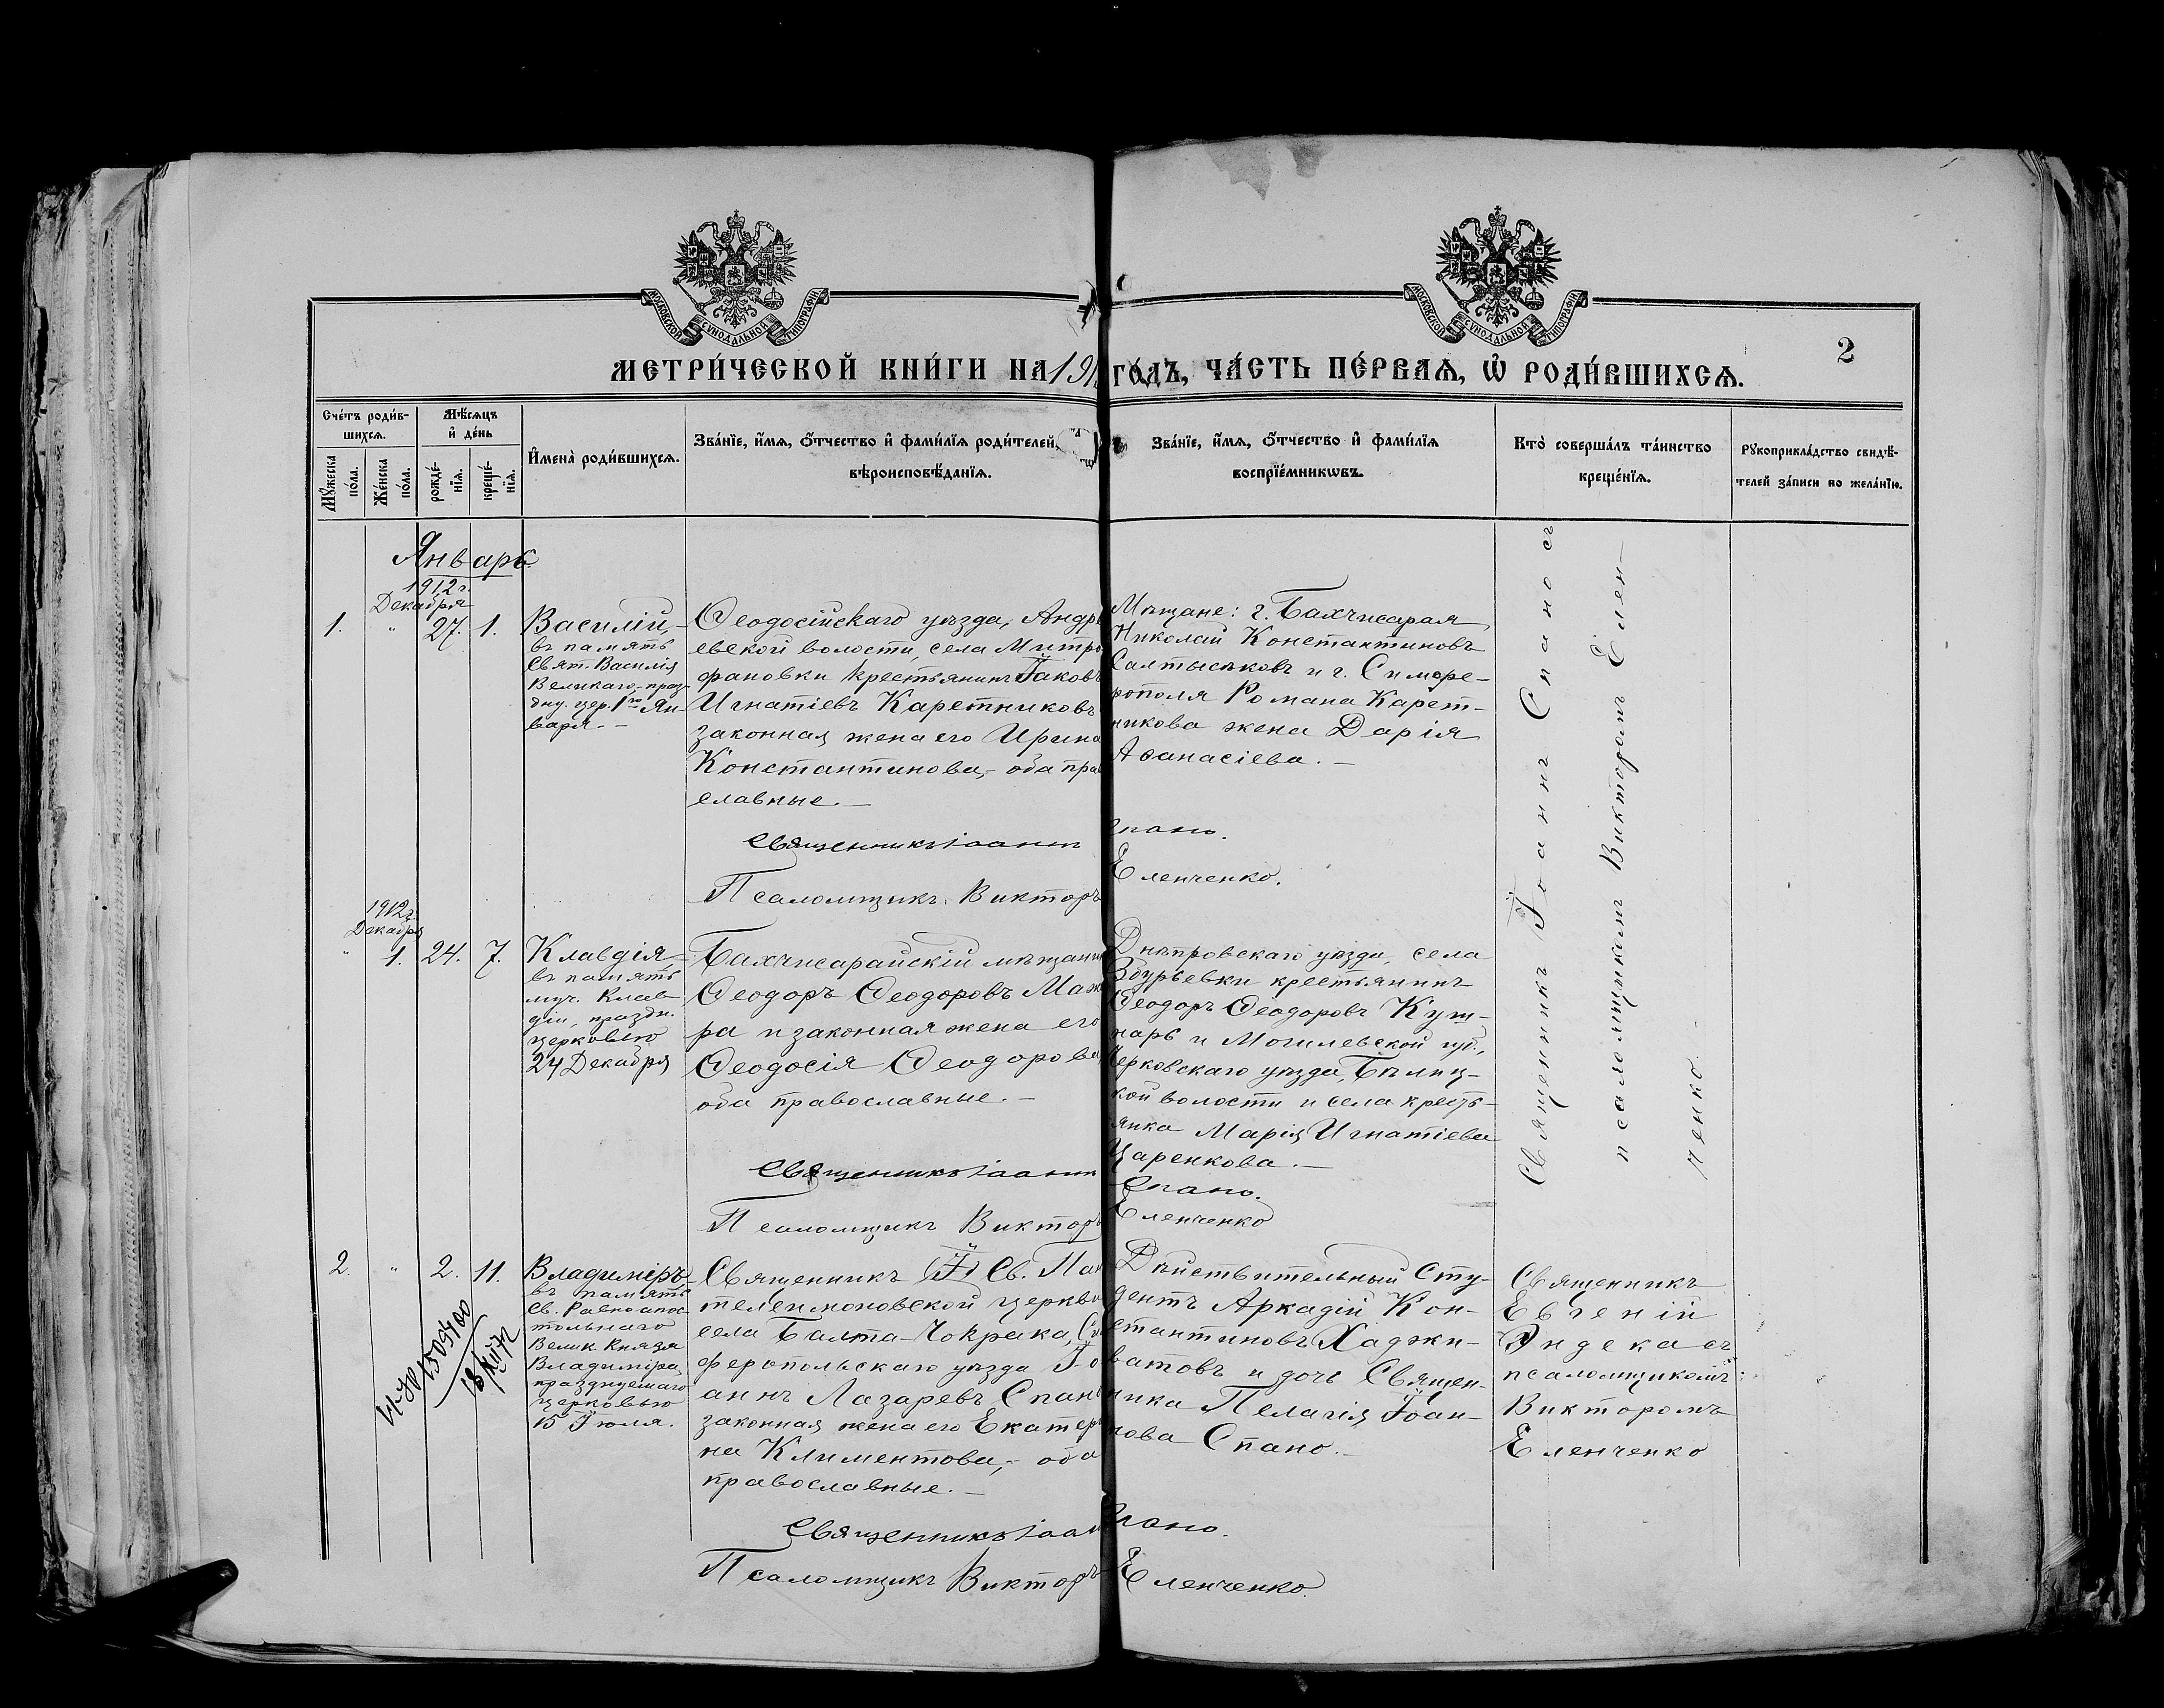 МОСКОВСКОЙ СѴНОДАЛЬНОЙ ТИПОГРАФІИ
МОСКОВСКОЙ СѴНОДАЛЬНОЙ ТИПОГРАФІИ
2
МЕТРИ́ЧЕСКОЙ КНИ́ГИ НА 191 ГО́ДЪ, ЧА́СТЬ ПЕ́РВАѦ, Ѡ РОДИ́ВШИХСѦ.
Сче́тъ роди́в-
шихсѧ.
Мѣ́сѧцъ
и҆ де́нь
Мꙋ́жеска
по́ла.
Же́нска
по́ла.
рожде́-
нїѧ.
креще́-
нїѧ.
И҆мена̀ роди́вшихсѧ.
Зва́нїе, и҆́мѧ, ѻ҆́тчество и҆ фами́лїѧ роди́телей,
вѣроисповѣ́данїѧ.
Зва́нїе, и҆́мѧ, ѻ҆́тчество и҆ фами́лїѧ
воспрїе́мникѡвъ.
Кто̀ соверша́лъ та́инство
креще́нїѧ.
Рꙋкоприкла́дство свидѣ́-
телей за́писи по жела́нїю.
Январь
1912 г.
Декабря
1. " 27. 1.
Василій,
въ память
Свят. Василія
Великаго, праз-
дну. цер. 1го Ян-
варя. —
Ѳеодосійскаго уѣзда, Андре
евской волости, села Митро
фановки крестьянинъ Іаковъ
Игнатіевъ Каретниковъ
законная жена его Ирина
Константинова, - оба пра
славные. —
Священникъ Іоаннъ
Псаломщикъ Викторъ
Мѣщане: г. Бахчисарая
Николай Константиновъ
Салтысековъ и г. Симфе-
рополя Романа Карет-
никова жена Дарія
Аѳанасіева. —
Спано.
Еленченко.
Священникъ Іоаннъ Спано съ
псаломщикомъ Викторомъ Елен-
ченко. —
1912 г.
Декабря
" 1. 24. 7.
Клавдія
въ память
муч. Клав
діи, праздн.
церковью
24 Декабря
Бахчисарайскій мѣщанин
Ѳеодоръ Ѳеодоровъ Маж
ра и законная жена его
Ѳеодосія Ѳеодорова,
оба православные. —
Священникъ Іоаннъ
Псаломщикъ Викторъ
Днѣпровскаго уѣзда, села
Збурьевки крестьянинъ
Ѳеодоръ Ѳеодоровъ Куш-
нарь и Могилевской губ.,
уѣзда, Бѣлиц-
кой волости и села кресть-
янка Марія Игнатіева
Царенкова. —
Спано.
Еленченко
2. " 2. 11.
Владиміръ,
въ память
Св. Равноапос
тольнаго
Велик. Князя
Владиміра,
празднуемаго
церковью
15 Іюля.
18/XII 72
Священникъ Св. Пан
телеимоновской церкви
села Балта-Чокрака, Си
феропольскаго уѣзда Іо
аннъ Лазаревъ Спано
законная жена его Екатери
на Климентова, - оба
православные. —
Священникъ Іоанн
Псаломщикъ Викторъ
Дѣйствительный Сту-
дентъ Аркадій Кон-
стантиновъ Хаджи-
ватовъ и дочь Священ-
ника Пелагія Іоан-
нова Спано. —
Спано.
Еленченко.
Священникъ
Евгеній
Эндека съ
псаломщикомъ
Викторомъ
Еленченко